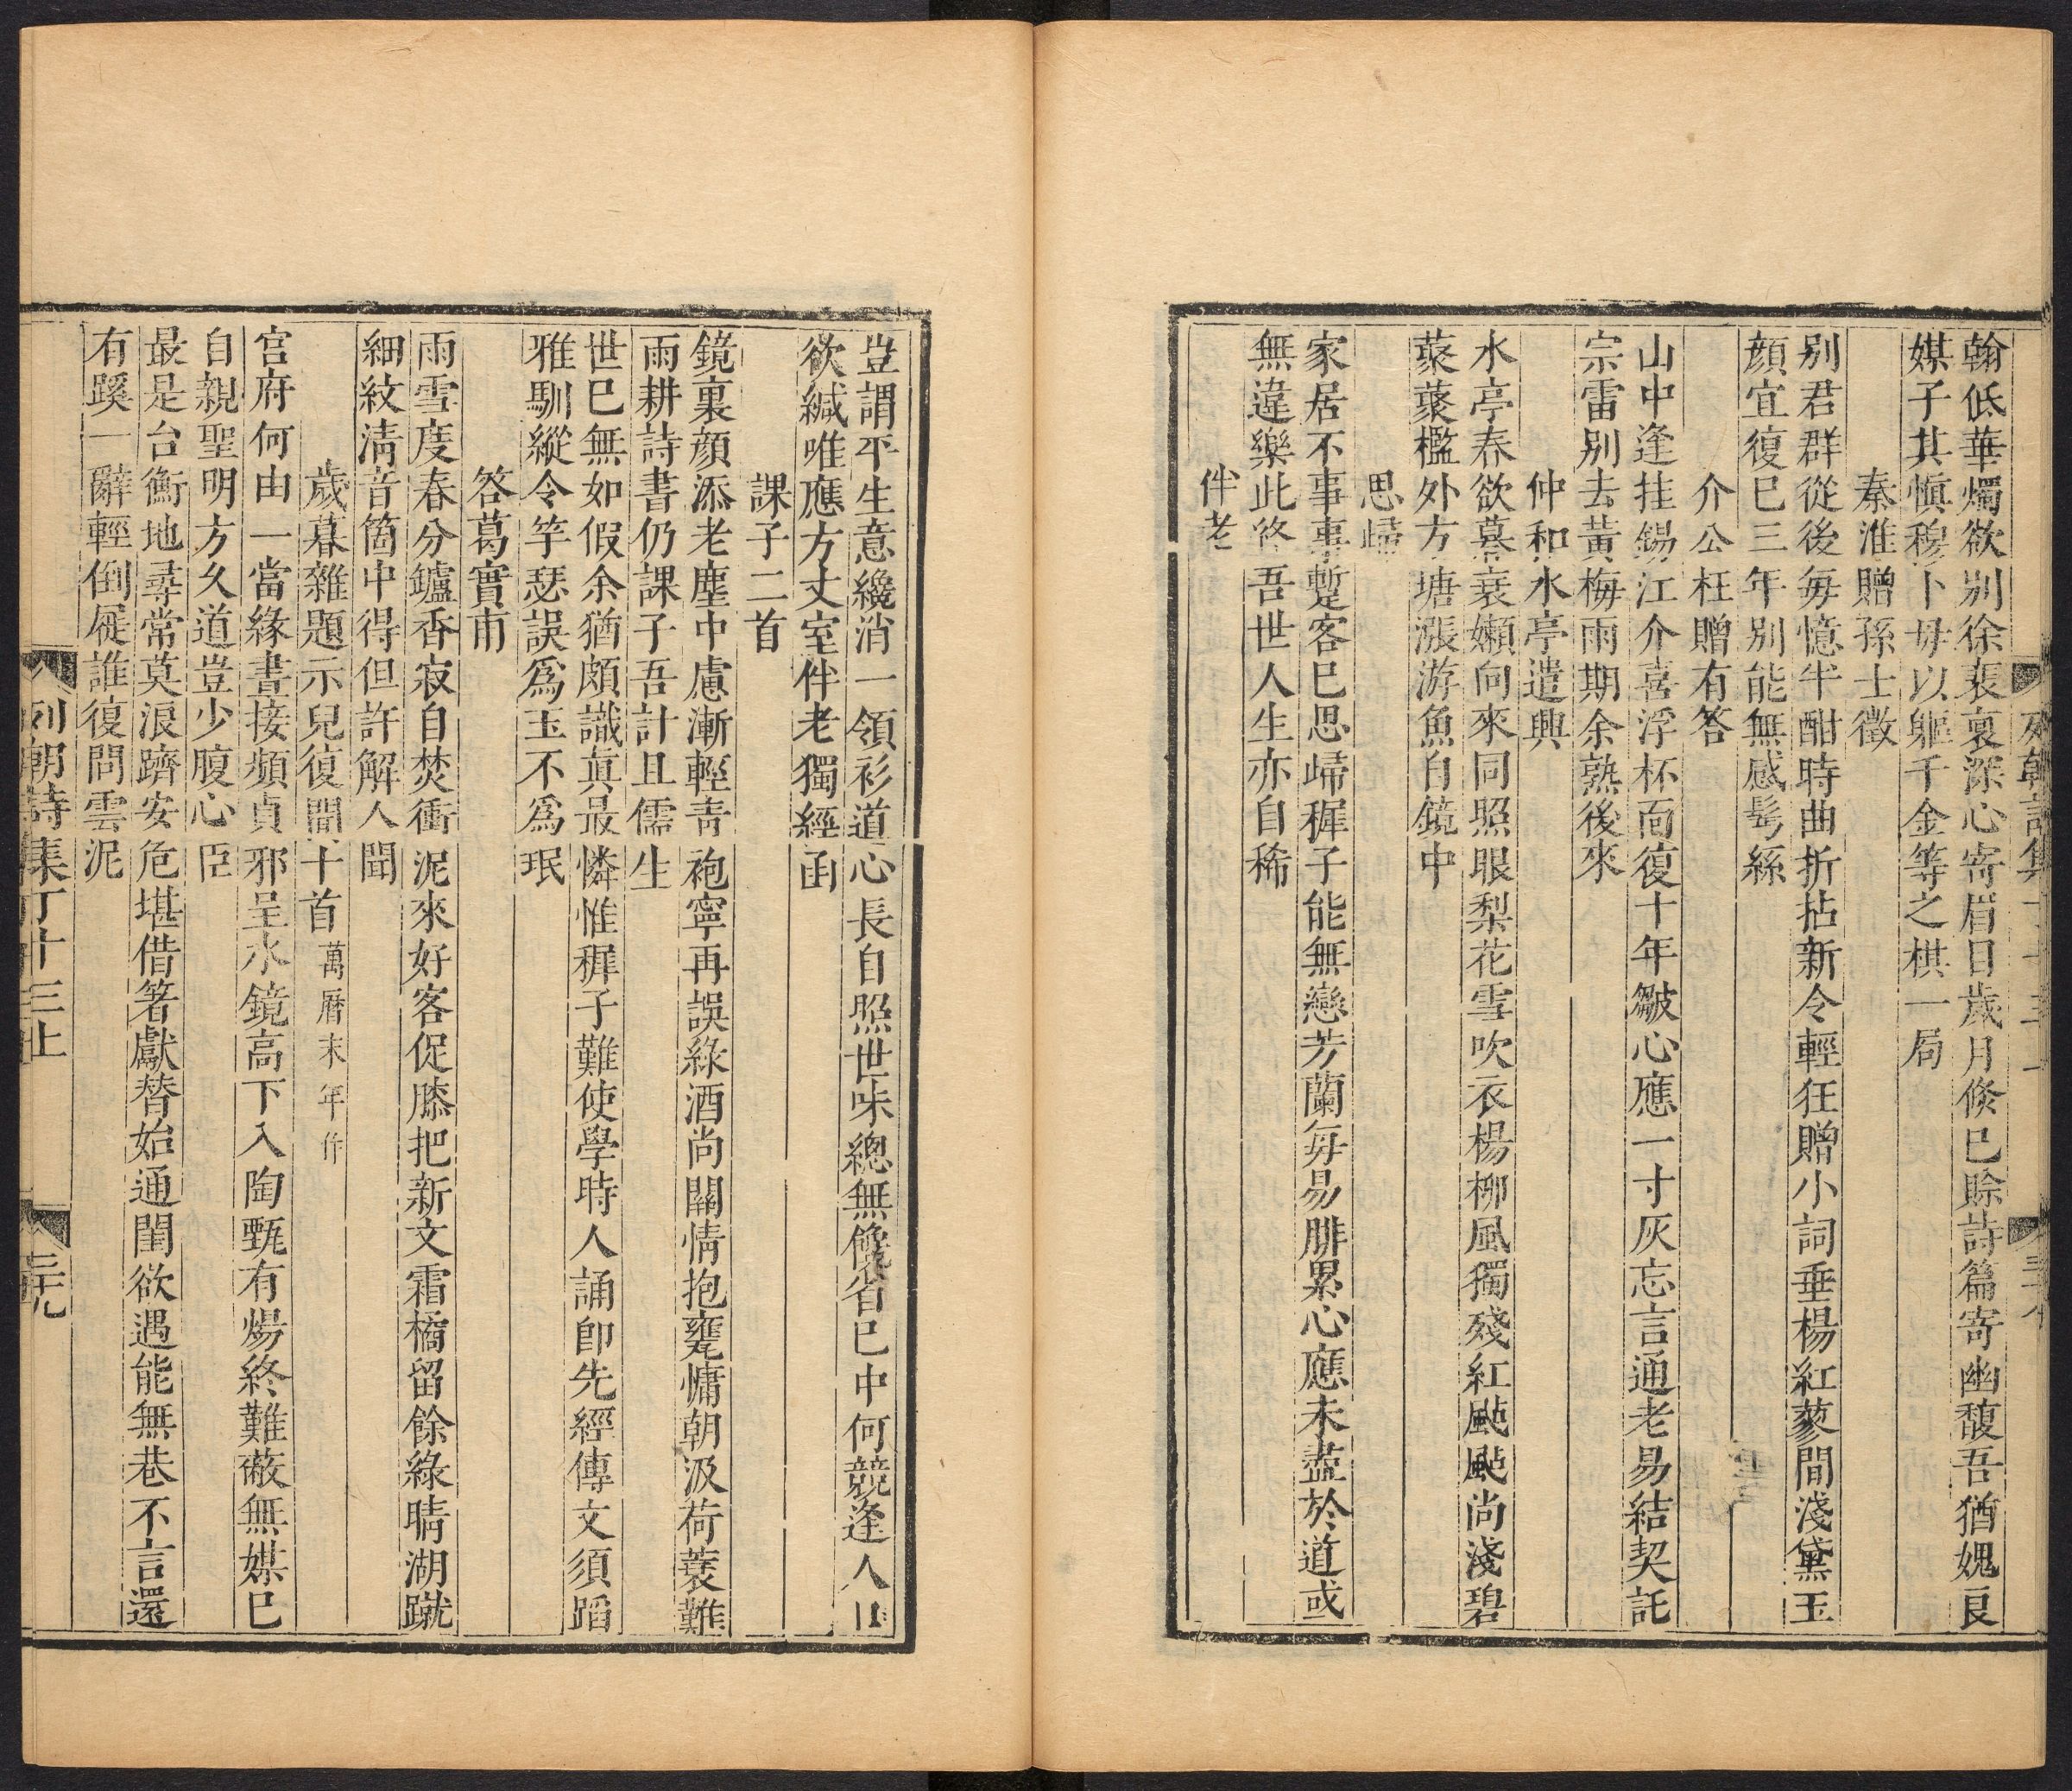 翰低華燭欲別徐裴裒深心寄眉目歲月倐巳賒詩篇寄幽馥吾猶媿良
媒子其愼穆卜毋以軀千金等之棋一局
秦淮贈孫士徵
別君群從後每憶半酣時曲折拈新令輕狂贈小詞垂楊紅蓼間淺黛玉
顔宜復巳三年別能無感髩絲
介公枉贈有答
山中逢挂錫江介喜浮杯面復十年皺心應一寸灰忘言通老易結契託
宗雷別去黃梅雨期余熟後來
仲和水亭遣興
水亭春欲暮衰嬾向來同照眼梨花雪吹衣楊柳風獨殘紅颭颭尚淺碧
蒙蒙檻外方塘漲游魚自鏡中
思歸
家居不事事蹔客巳思歸穉子能無戀芳蘭每易腓累心應未盡於道或
無違樂此終吾世人生亦自稀
伴老
豈謂平生意纔消一領衫道心長自照世味總無饞省巳中何競逢人口
欲緘唯應方丈室伴老獨經函
課子二首
鏡裏顔添老塵中慮漸輕靑袍寧再誤綠酒尚關情抱甕慵朝汲荷蓑難
雨耕詩書仍課子吾計且儒生
世巳無如假余猶頗識眞最憐惟穉子難使學時人誦卽先經傳文須蹈
雅馴縱令竽瑟誤爲玉不爲珉
答葛實甫
雨雪度春分鑪香寂自焚衝泥來好客促膝把新文霜橘留餘綠晴湖蹴
細紋淸音箇中得但許解人聞
歲暮雜題示兒復間十首萬曆末年作
官府何由一當緣晝接頻貞邪呈水鏡高下入陶甄有煬終難蔽無媒巳
自親聖明方久道豈少腹心臣
最是台衡地尋常莫浪躋安危堪借箸獻替始通閨欲遇能無巷不言還
有蹊一辭輕倒屣誰復問雲泥
列朝詩集丁十三上
三九